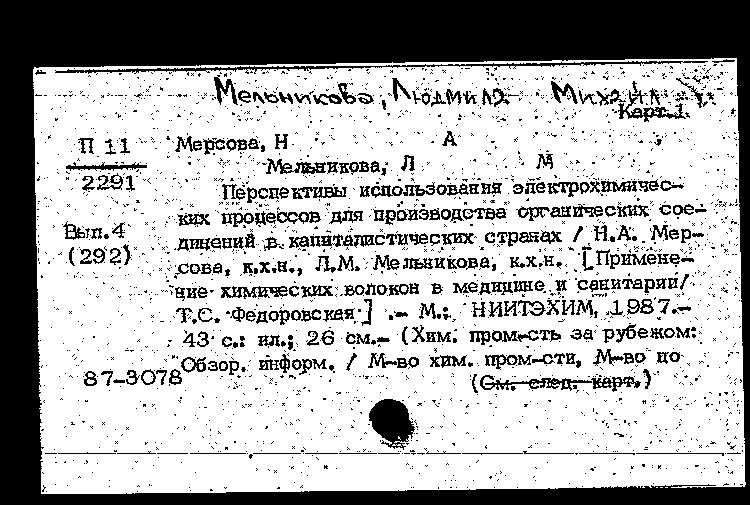 Мельникова, Людмила
Карт. 1.
П 11 Мерсова, Н А
2291 Мельникова, Л М
Перспективы использования электрохимичес-
ких процессов для производства органических сое-
Вып.4 динений в капиталистических странах / Н.А. Мер-
(292) сова, к.х.н., Л.М. Мельникова, к.х.н. [Примене-
ние химических волокон в медицине и санитарии/
Т.С. Федоровская] .- М.: НИИТЭХИМ, 1987.-
43 с.: ил.; 26 см.- (Хим. пром-сть за рубежом:
Обзор. информ. / М-во хим. пром-сти, М-во по
87-3078 (См. след. карт.)